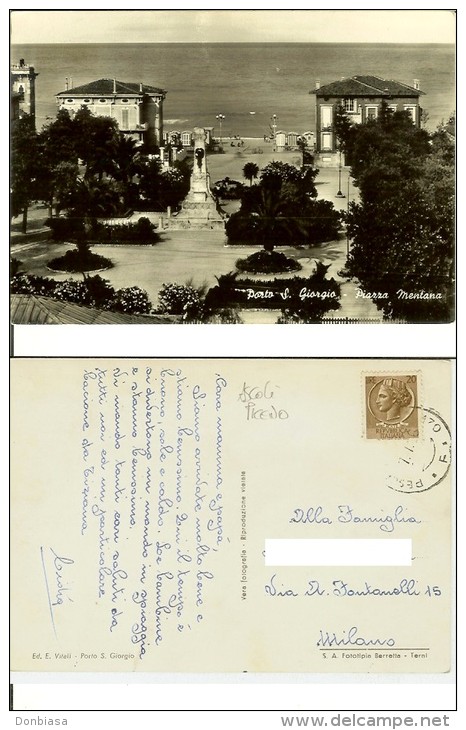 Porto S. Giorgio - Piazza Mentana
Ascoli
Piceno
Cara mamma e papà,
Siamo arrivate molto bene e
stiamo benissimo. Qui il tempo è
buono, sole e caldo. Le bambine
si divertono un mondo in spiaggia
e stanno benissimo.
Vi mando tanti cari saluti da
tutti noi ed in particolare
bacione da Tiziana
vera fotografia - Riproduzione vietata
LIRE 20
REPUBBLICA
ITALIANA
Alla Famiglia
Via A. Fontanelli 15
Milano
Ed. E. Vitali - Porto S. Giorgio
S. A. Fototipia Berretta - Terni
Donbiasa
www.delcampe.net